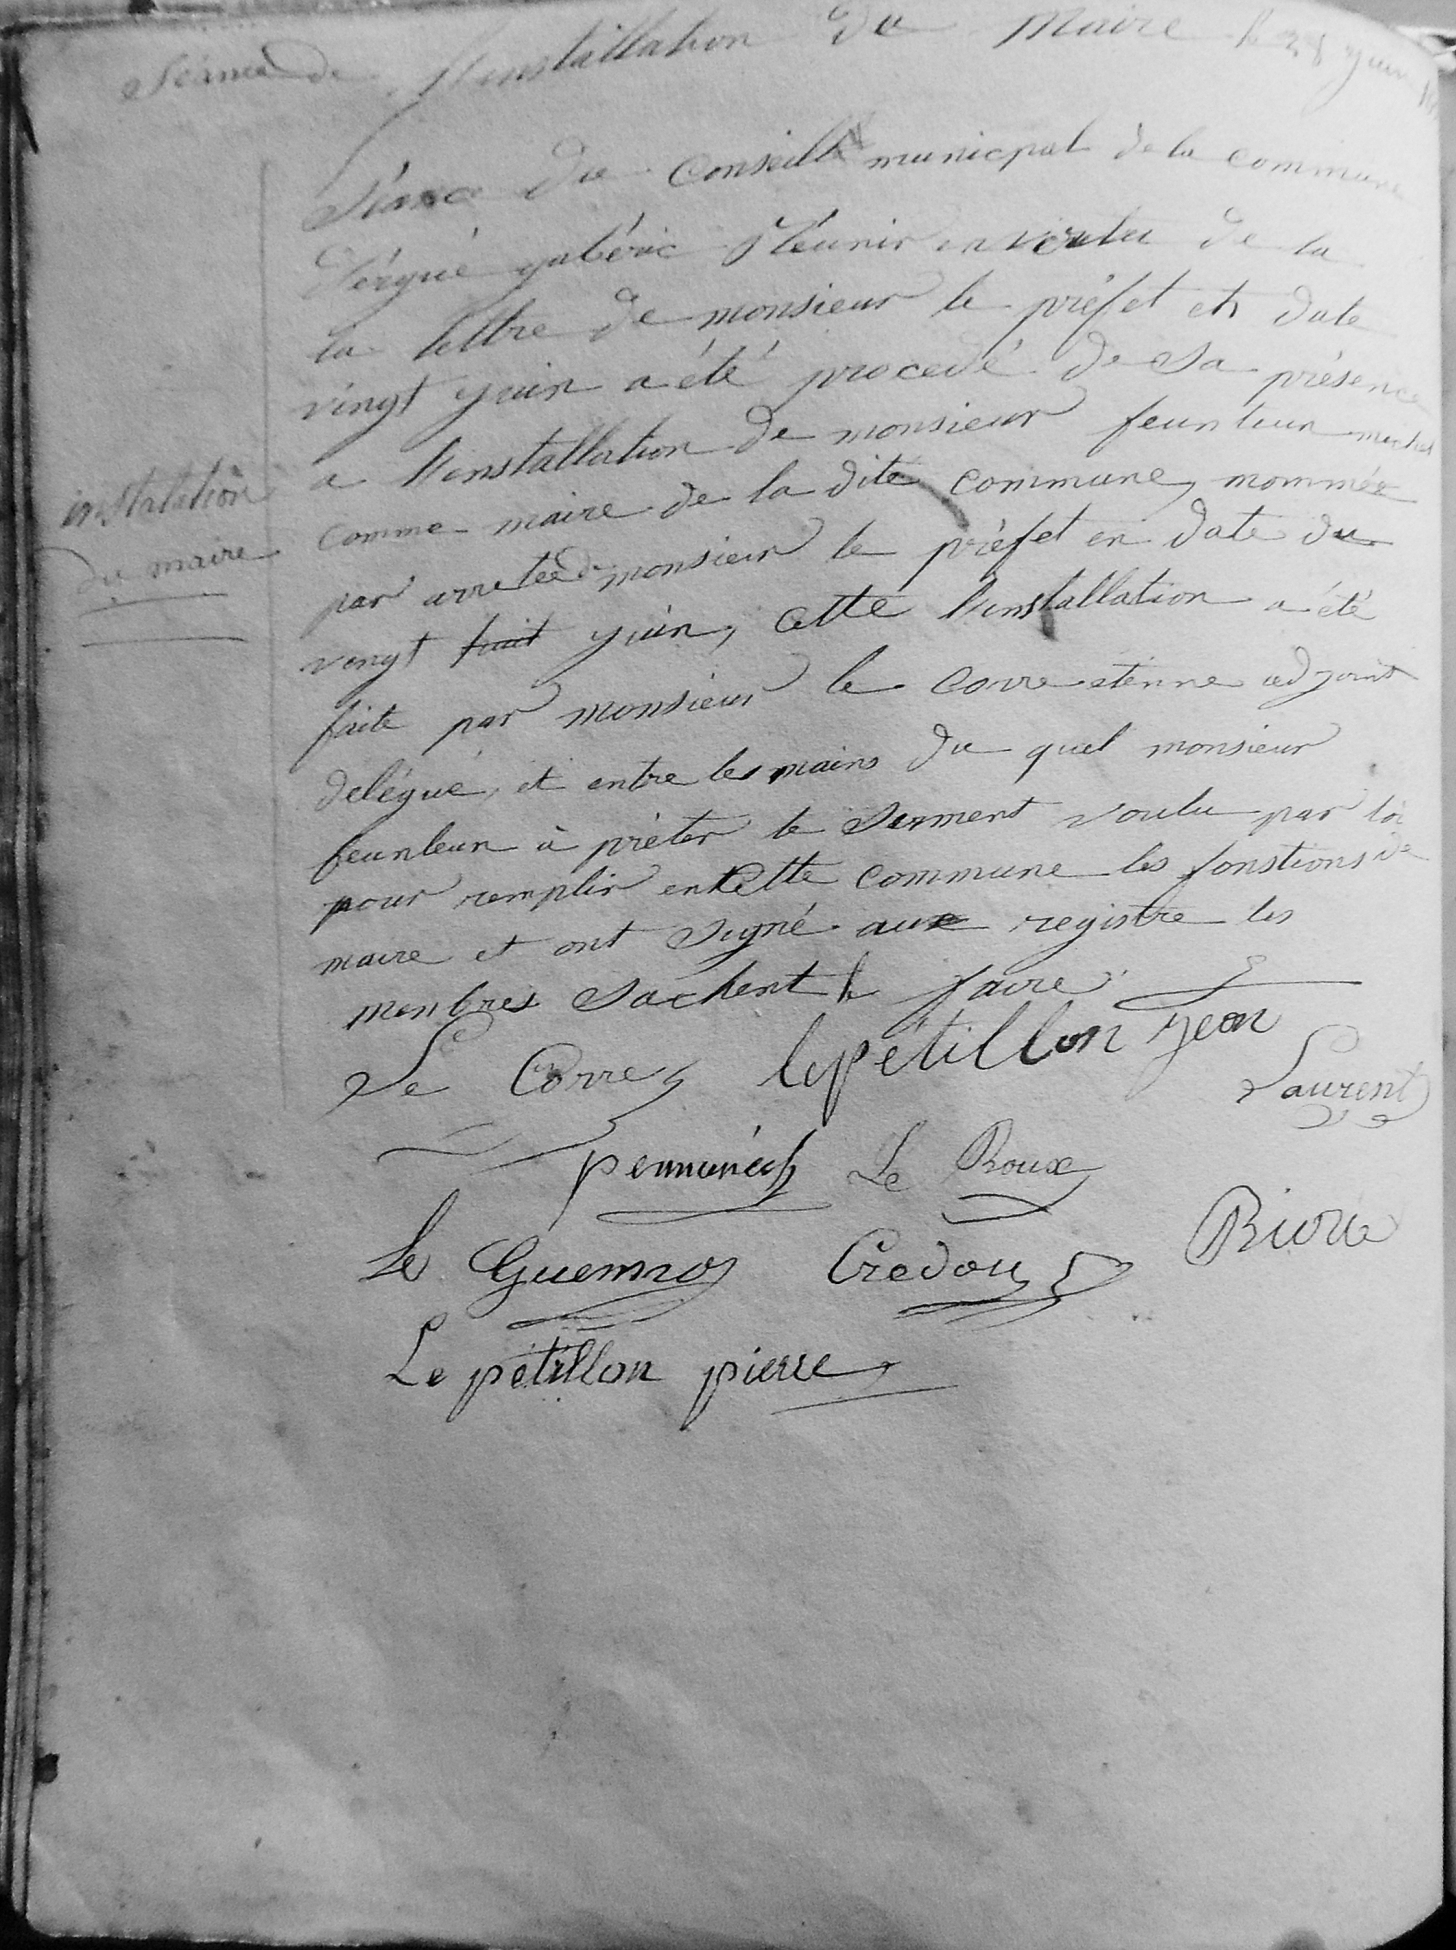 Séance de l'installation du Maire le 28 juin
Séance du Conseill municpal de la commune
d'érgué gabéric Réunir en vertu de la
la lettre de monsieur le préfet en date
vingt juin a été procedé de sa présence
a l'installation de monsieur feunteun michel
comme maire de la dite commune, nommée
installation
du maire
par arretée de monsieur le préfet en date du
vengt huit juin, cette l'installation a été
faite par monsieur le corre etienne adjoint
delégué, et entre les mains du quel monsieur
feunteun à prêter le serment voulu par loi
pour remplir en cette commune les fonstions de
maire et ont signé aux registre les
menbres sachent le faire.
Le Corre lepétillon jean
Laurent
pennanéch Le Roux
Le Guenno Credou Riou
Le pétillon pierre